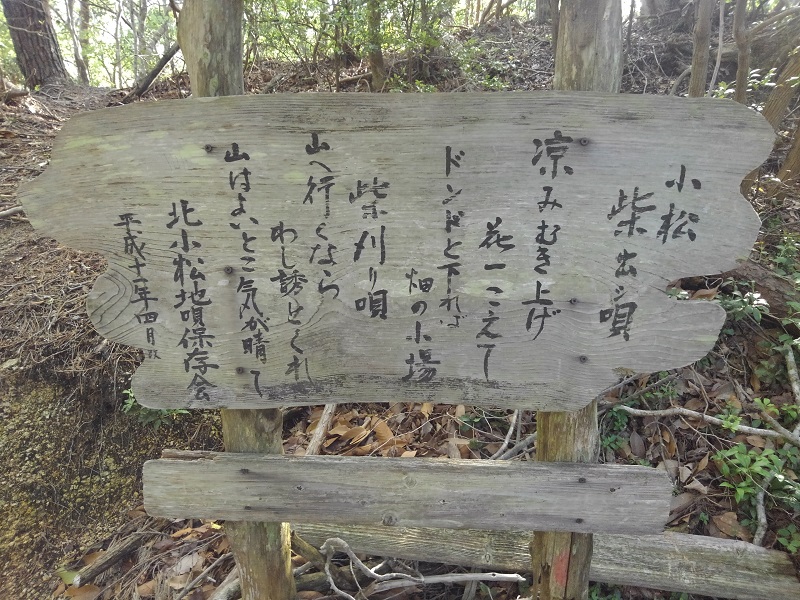 小松
柴出し唄
凉みむき上げ
花一こえて
ドンドと下れば
畑の小場
柴刈り唄
山へ行くなら
わし誘とくれ
山はよいとこ気が晴て
北小松地唄保存会
平成十一年四月